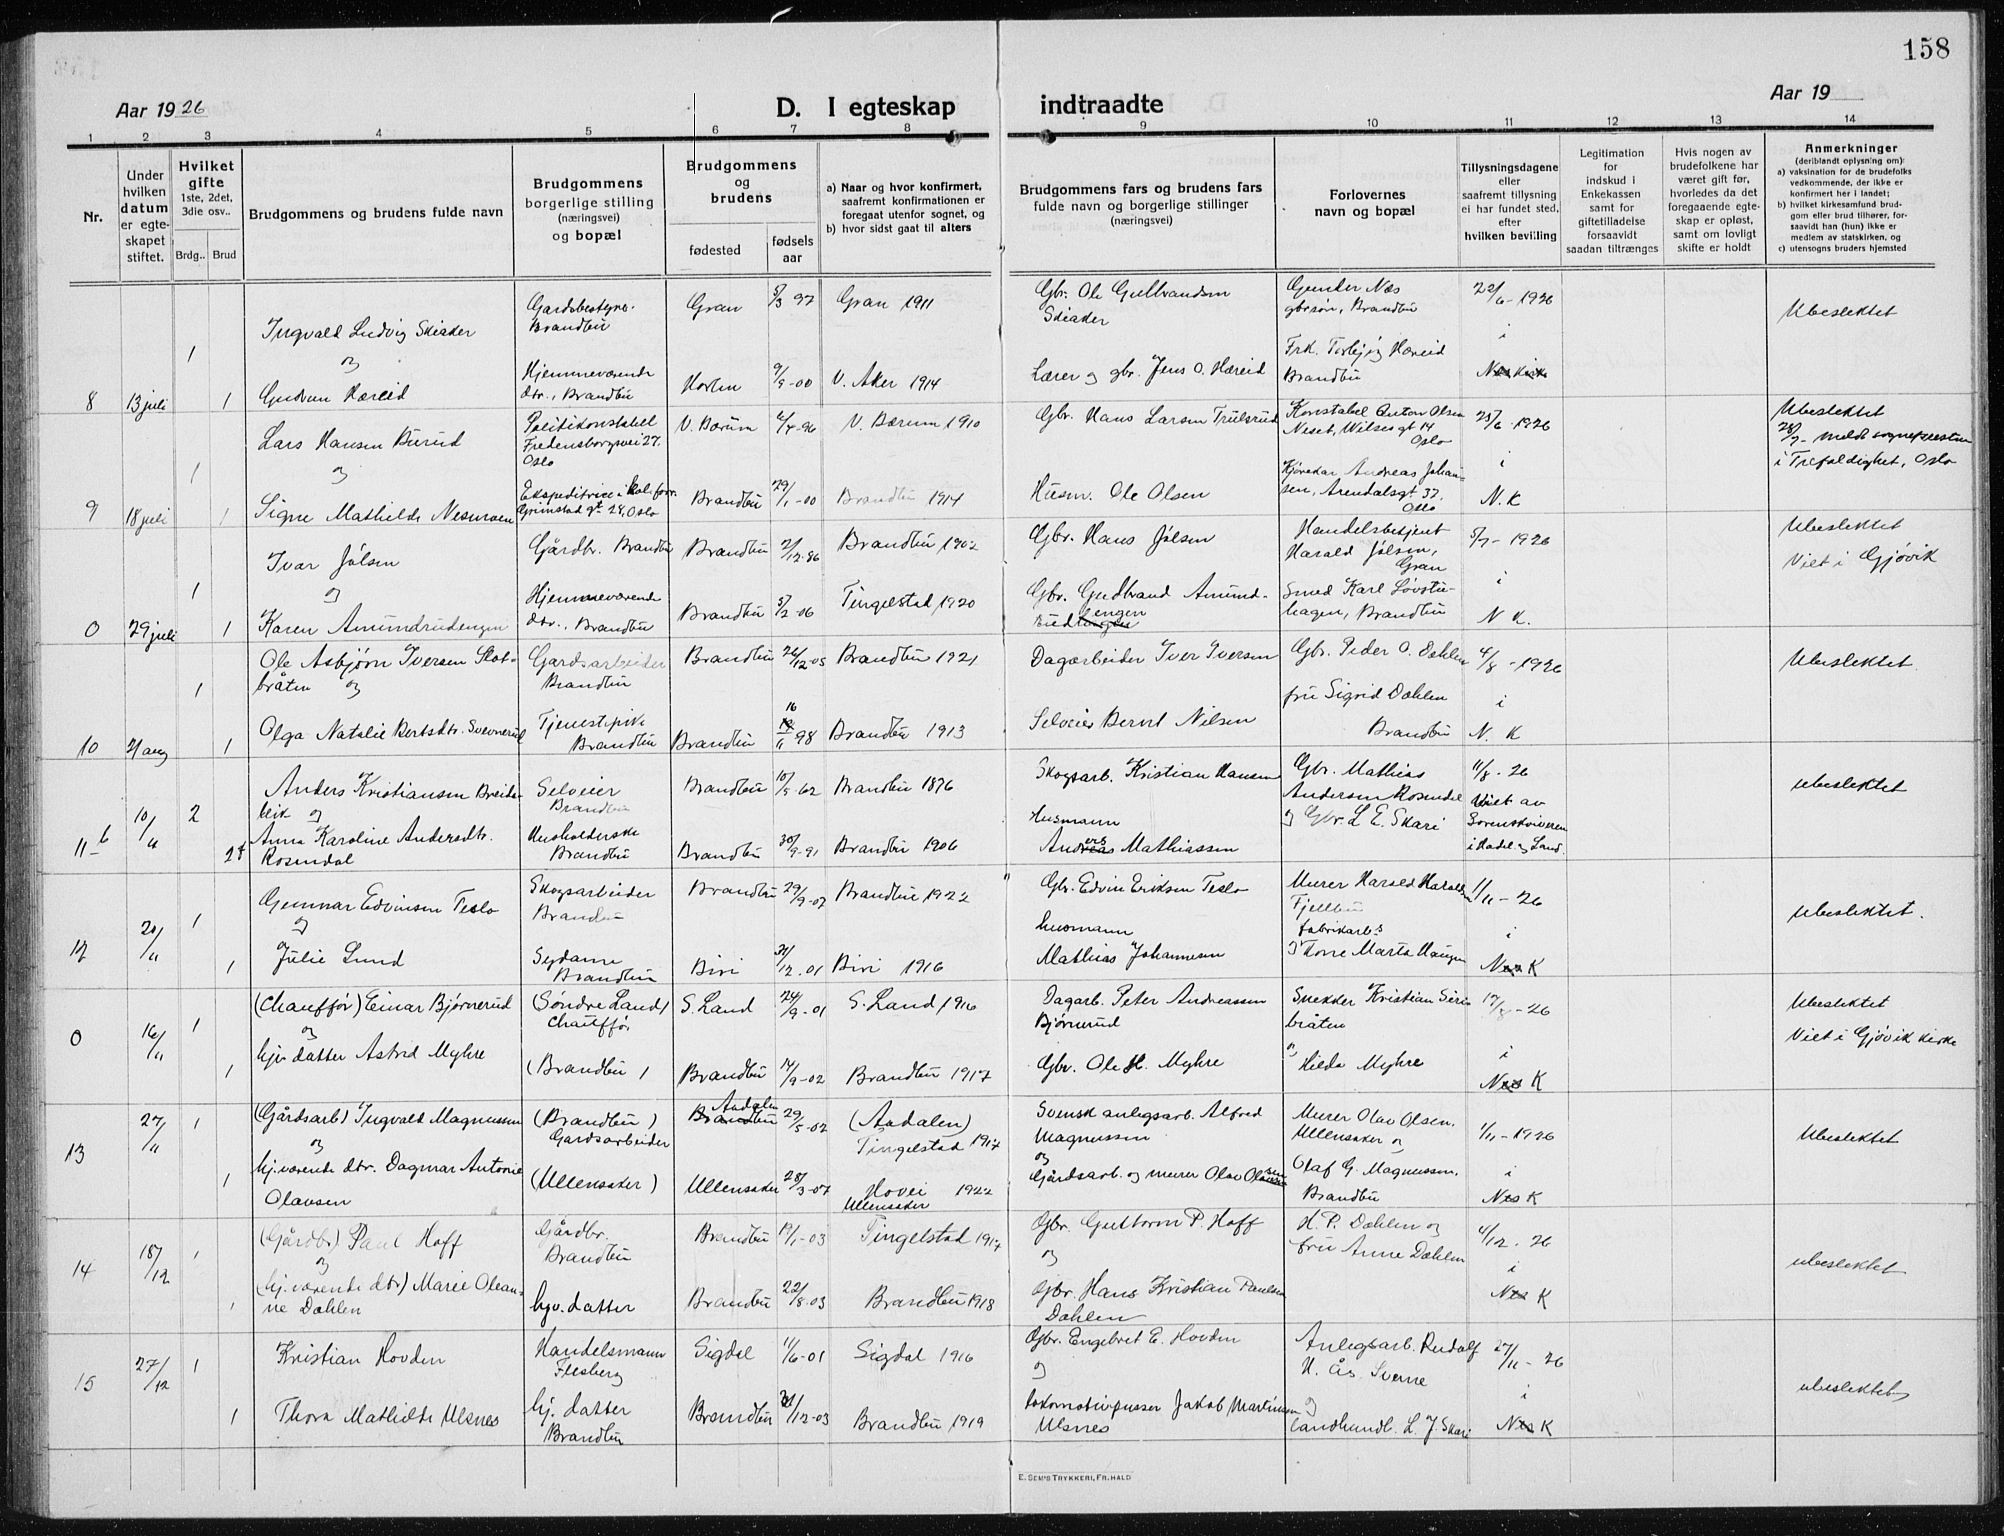 158
Aar 1926
D. I egteskap
indtraadte
Aar 19
1 2 3 4 5 6 7 8 9 10 11 12 13 14
Nr.
Under
hvilken
datum
er egte-
skapet
stiftet.
Hvilket
gifte
1ste, 2det,
3die osv..
Brdg.. Brud
Brudgommens og brudens fulde navn
Brudgommens
borgerlige stilling
(næringsvei)
og bopæl
Brudgommens
og
brudens
fødested
fødsels
aar
a) Naar og hvor konfirmert,
saafremt konfirmationen er
foregaat utenfor sognet, og
b) hvor sidst gaat til alters
Brudgommens fars og brudens fars
fulde navn og borgerlige stillinger
(næringsvei)
Forlovernes
navn og bopæl
Tillysningsdagene
eller
saafremt tillysning
ei har fundet sted,
efter
hvilken bevilling
Legitimation
for
indskud i
Enkekassen
samt for
giftetilladelse
forsaavidt
saadan tiltrænges
Hvis nogen av
brudefolkene har
været gift før,
hvorledes da det
foregaaende egte-
skap er opløst,
samt om lovligt
skifte er holdt
Anmerkninger
(deriblandt oplysning om):
a) vaksination for de brudefolks
vedkommende, der ikke er
konfirmert her i landet;
b) hvilket kirkesamfund brud-
gom eller brud tilhører, for-
saavidt han (hun) ikke er
medlem av statskirken, og
c) utensogns bruders hjemsted
8 13 juli 1
Ingvald Ludvig Skiaker
Gardsbestyrer
Brandbu
Gran 5/3 97 Gran 1911
Gbr. Ole Gulbrandsen
Skiaker
Gunder Næs
gbrsøn, Brandbu
22/6 - 1926
Ubeslektet
og
1 Gudrun Hæreid
Hjemmeværende
dtr., Brandbu
Horten 9/9-00 V. Aker 1914
Lærer og gbr. Jens O. Hæreid
Frk. Torbjørg Hæreid
Brandbu
i
Nes kirke
9 18 juli 1
Lars Hansen Burud
Politikonstabel
Fredensborgvei 27.
Oslo
V. Bærum 4/4-96 V. Bærum 1910
Gbr. Hans Larsen Trulsrud
Konstabel Anton Olsen
Neset, Wilsesgt 14
Oslo
25/6 - 1926
Ubeslektet
28/7- meldt sogneprestn
i Trefoldighet, Oslo
og
1 Signe Mathilde Nesmoen
Ekspeditrice i
Grimstad gt. 28, Oslo
Brandbu 29/1-00 Brandbu 1914
Husm. Ole Olsen
Kjørekar Andreas Johan-
sen, Arendalsgt 37.
Oslo
i
N. K
0 29 juli 1
Ivar Jølsen
Gårdbr. Brandbu
Brandbu 2/12-86 Brandbu 1902
Gbr. Hans Jølsen
Handelsbetjent
Harald Jølsen,
Gran
5/7 - 1926
Ubeslektet
Viet i Gjøvik
og
1 Karen Amundrudengen
Hjemmeværende
dtr., Brandbu
Brandbu 5/2-06 Tingelstad 1920
Gbr. Gudbrand Amund-
rudengen
Smed Karl Løvstu-
hagen, Brandbu
i
N K.
10 21 aug 1
Ole Asbjørn Iversen Slot-
bråten og
Gardsarbeider
Brandbu
Brandbu 26/12-05 Brandbu 1921
Dagarbeider Iver Iversen
Gbr. Peder O. Dæhlen
4/8 - 1926
Ubeslektet.
1 Olga Natalie Bertsdtr. Svevnerud
Tjenestepike
Brandbu
Brandbu 16/11 98 Brandbu 1913
Selveier Bernt Nilsen
fru Sigrid Dæhlen
Brandbu
i
N. K
11 b 10/11 2
Anders Kristiansen Breida-
bik og
Selveier
Brandbu
Brandbu 10/5-62 Brandbu 1876
Skogsarb. Kristian Hansen
Gbr. Mathias
Andersen Rosendal
og Gbr. L. E. Skari
11/8 - 26
Viet av
Sorenskriveren
i Hadel. og Land.
ubeslektet
Anna Karoline Andersdtr.
Rosendal
Husholderske
Brandbu
Brandbu 30/9-91 Brandbu 1906
Husmann
Anders Mathiassen
12 20/11 1
Gunnar Edvinsen Teslo
og
Skogsarbeider
Brandbu
Brandbu 29/9-07 Brandbu 1922
Gbr. Edvin Eriksen Teslo
Murer Harald Haralds
Fjellbu
11/11 - 26
ubeslektet.
1 Julie Lund
Sydame
Brandbu
Biri 31/12-01 Biri 1916
husmann
Mathias Johannesen
fabrikarb.s
Kone Marta Haugen
i
Nes K
0 16/11 1
(Chauffør) Einar Bjørnerud
og
(Søndre Land)
Chauffør
S. Land 24/9-01 S. Land 1916
Dagarb. Peter Andreassen
Bjørnerud
Snekker Kristian Siri-
bråten
17/8 - 26
Ubeslektet
Viet i Gjøvik kirke
1 hjv. datter Astrid Myhre
(Brandbu)
Brandbu 14/9-02 Brandbu 1917
Gbr. Ole H. Myhre
og
Hilda Myhre
i
Nes K
13 27/11 1
(Gårdsarb) Ingvald Magnussen
og
(Brandbu)
Gardsarbeider
Aadalen
Brandbu 29/5-02 (Aadalen)
Tingelstad 1917
Svensk anlegsarb. Alfred
Magnussen
og
Murer Olav Olsen.
Ullensaker og
1/11 - 1926
Ubeslektet
1 hj.værende dtr. Dagmar Antonie
Olavsen
(Ullensaker)
Ullensaker 28/3-07 Hovei 1922
Ullensaker
Gårdsarb. og murer Olav Olavsen
Olaf G. Magnussen,
Brandbu
i
Nes K
14 18/12 1
(Gårdbr) Paul Hoff
og
Gårdbr.
Brandbu
Brandbu 19/1-03 Tingelstad 1917
Gbr. Guttorm P. Hoff
og
H. P. Dæhlen og
fru Anne Dæhlen
4/12. 26
ubeslektet
1 (hj.værende dtr) Marie Olean-
ne Dæhlen
hjv. datter
Brandbu 22/8-03 Brandbu 1918
Gbr. Hans Kristian Paulsen
Dæhlen
i
Nes K
15 27/12 1
Kristian Hovden
Handelsmann
Flesberg
Sigdal 11/6-01 Sigdal 1916
Gbr. Engebret E. Hovden
og
Anlegsarb. Rudolf
H. Ås. Sverre
27/11 - 26
ubeslektet
1 Thora Mathilde Ulsnes
hj. datter
Brandbu
Brandbu 31/12-03 Brandbu 1919
Lokomotivpusser Jakob Martinsen
Ulsnes
og
landhandl. L. J. Skari
i
Nes K
E. SEM'S TRYKKERI, FR.HALD